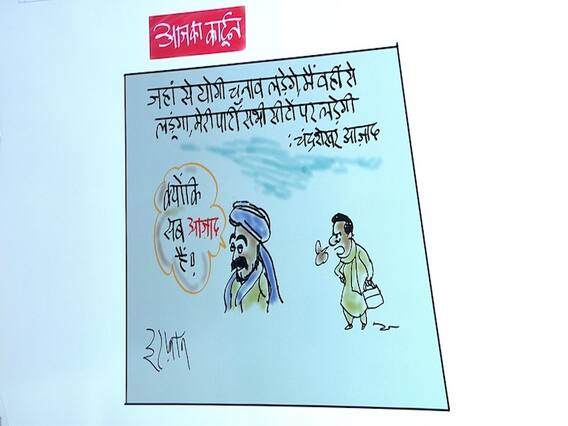 आज का कार्टून
जहां से योगी चुनाव लड़ेंगे, मैं वहीं से
लड़ूंगा, मेरी पार्टी सभी सीटों पर लड़ेगी
: चंद्रशेखर आज़ाद
क्योंकि
सब आज़ाद
हैं!
इरफ़ान